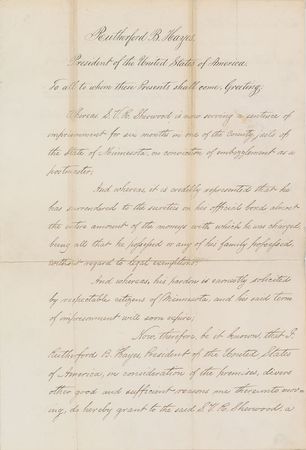 Rutherford B. Hayes,
President of the United States of America.
To all to whom these Presents shall come, Greeting:
Whereas S. V. R. Sherwood is now serving a sentence of
imprisonment for six months in one of the county jails of
the State of Minnesota, on conviction of embezzlement as a
postmaster;
And whereas, it is credibly represented that he
has surrendered to the sureties on his official bonds almost
the entire amount of the moneys with which he was charged,
being all that he possessed or any of his family possessed,
without regard to legal exemptions;
And whereas, his pardon is earnestly solicited
by respectable citizens of Minnesota, and his said term
of imprisonment will soon expire;
Now, therefore, be it known, that I,
Rutherford B. Hayes President of the United States
of America, in consideration of the premises, divers
other good and sufficient reasons me thereunto mov-
ing, do hereby grant to the said S. V. R. Sherwood, a